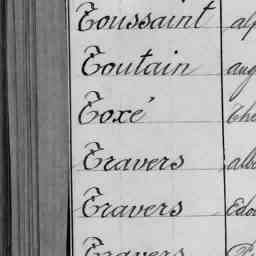 Toussaint alp
Toutain aug
Toxé The
Travers albe
Travers Edou
Travers